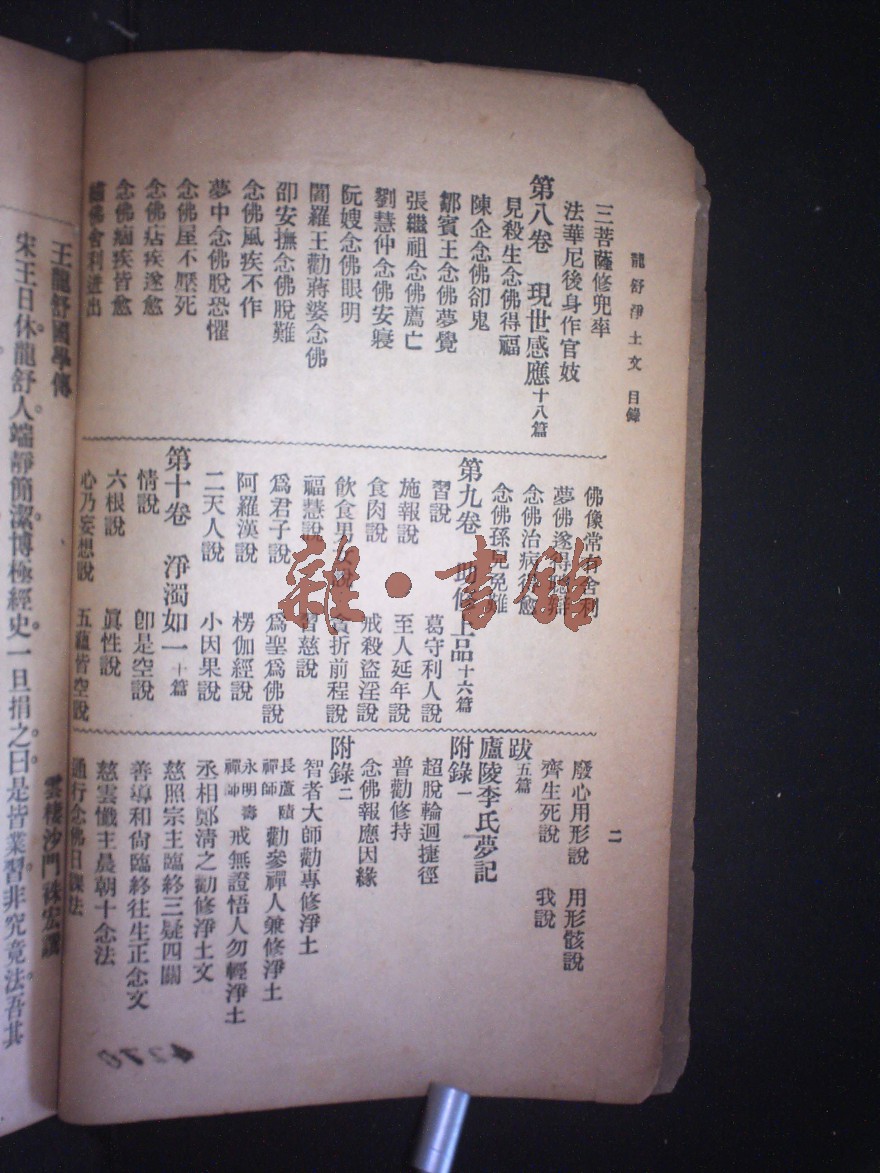 龍舒淨土文 目錄
二
三菩薩修兜率
法華尼後身作官妓
第八卷 現世感應十八篇
見殺生念佛得福
陳企念佛卻鬼
鄒賓王念佛夢覺
張繼祖念佛薦亡
劉慧仲念佛安寢
阮嫂念佛眼明
閻羅王勸蔣婆念佛
邵安撫念佛脫難
念佛風疾不作
夢中念佛脫恐懼
念佛屋不壓死
念佛痁疾遂愈
念佛痼疾皆愈
繡佛舍利迸出
佛像常有舍利
夢佛遂得
念佛治病得愈
念佛孫兒免難
第九卷 助修上品十六篇
習說 葛守利人說
施報說 至人延年說
食肉說 戒殺盜淫說
飲食男女說 貪折前程說
福慧說 習慈說
爲君子說 爲聖爲佛說
阿羅漢說 楞伽經說
二天人說 小因果說
第十卷 淨濁如一十篇
情說 卽是空說
六根說 眞性說
心乃妄想說 五蘊皆空說
廢心用形說 用形骸說
齊生死說 我說
跋五篇
廬陵李氏夢記
附錄一
超脫輪迴捷徑
普勸修持
念佛報應因緣
附錄二
智者大師勸專修淨土
長蘆賾禪師 勸參禪人兼修淨土
永明壽禪師 戒無證悟人勿輕淨土
丞相鄭清之勸修淨土文
慈照宗主臨終三疑四關
善導和尙臨終往生正念文
慈雲懺主晨朝十念法
通行念佛日課法
4270
王龍舒國學傳
雲棲沙門袾宏
宋王日休龍舒人端靜簡潔博極經史一旦捐之曰是皆業習非究竟法吾其
雜·書館